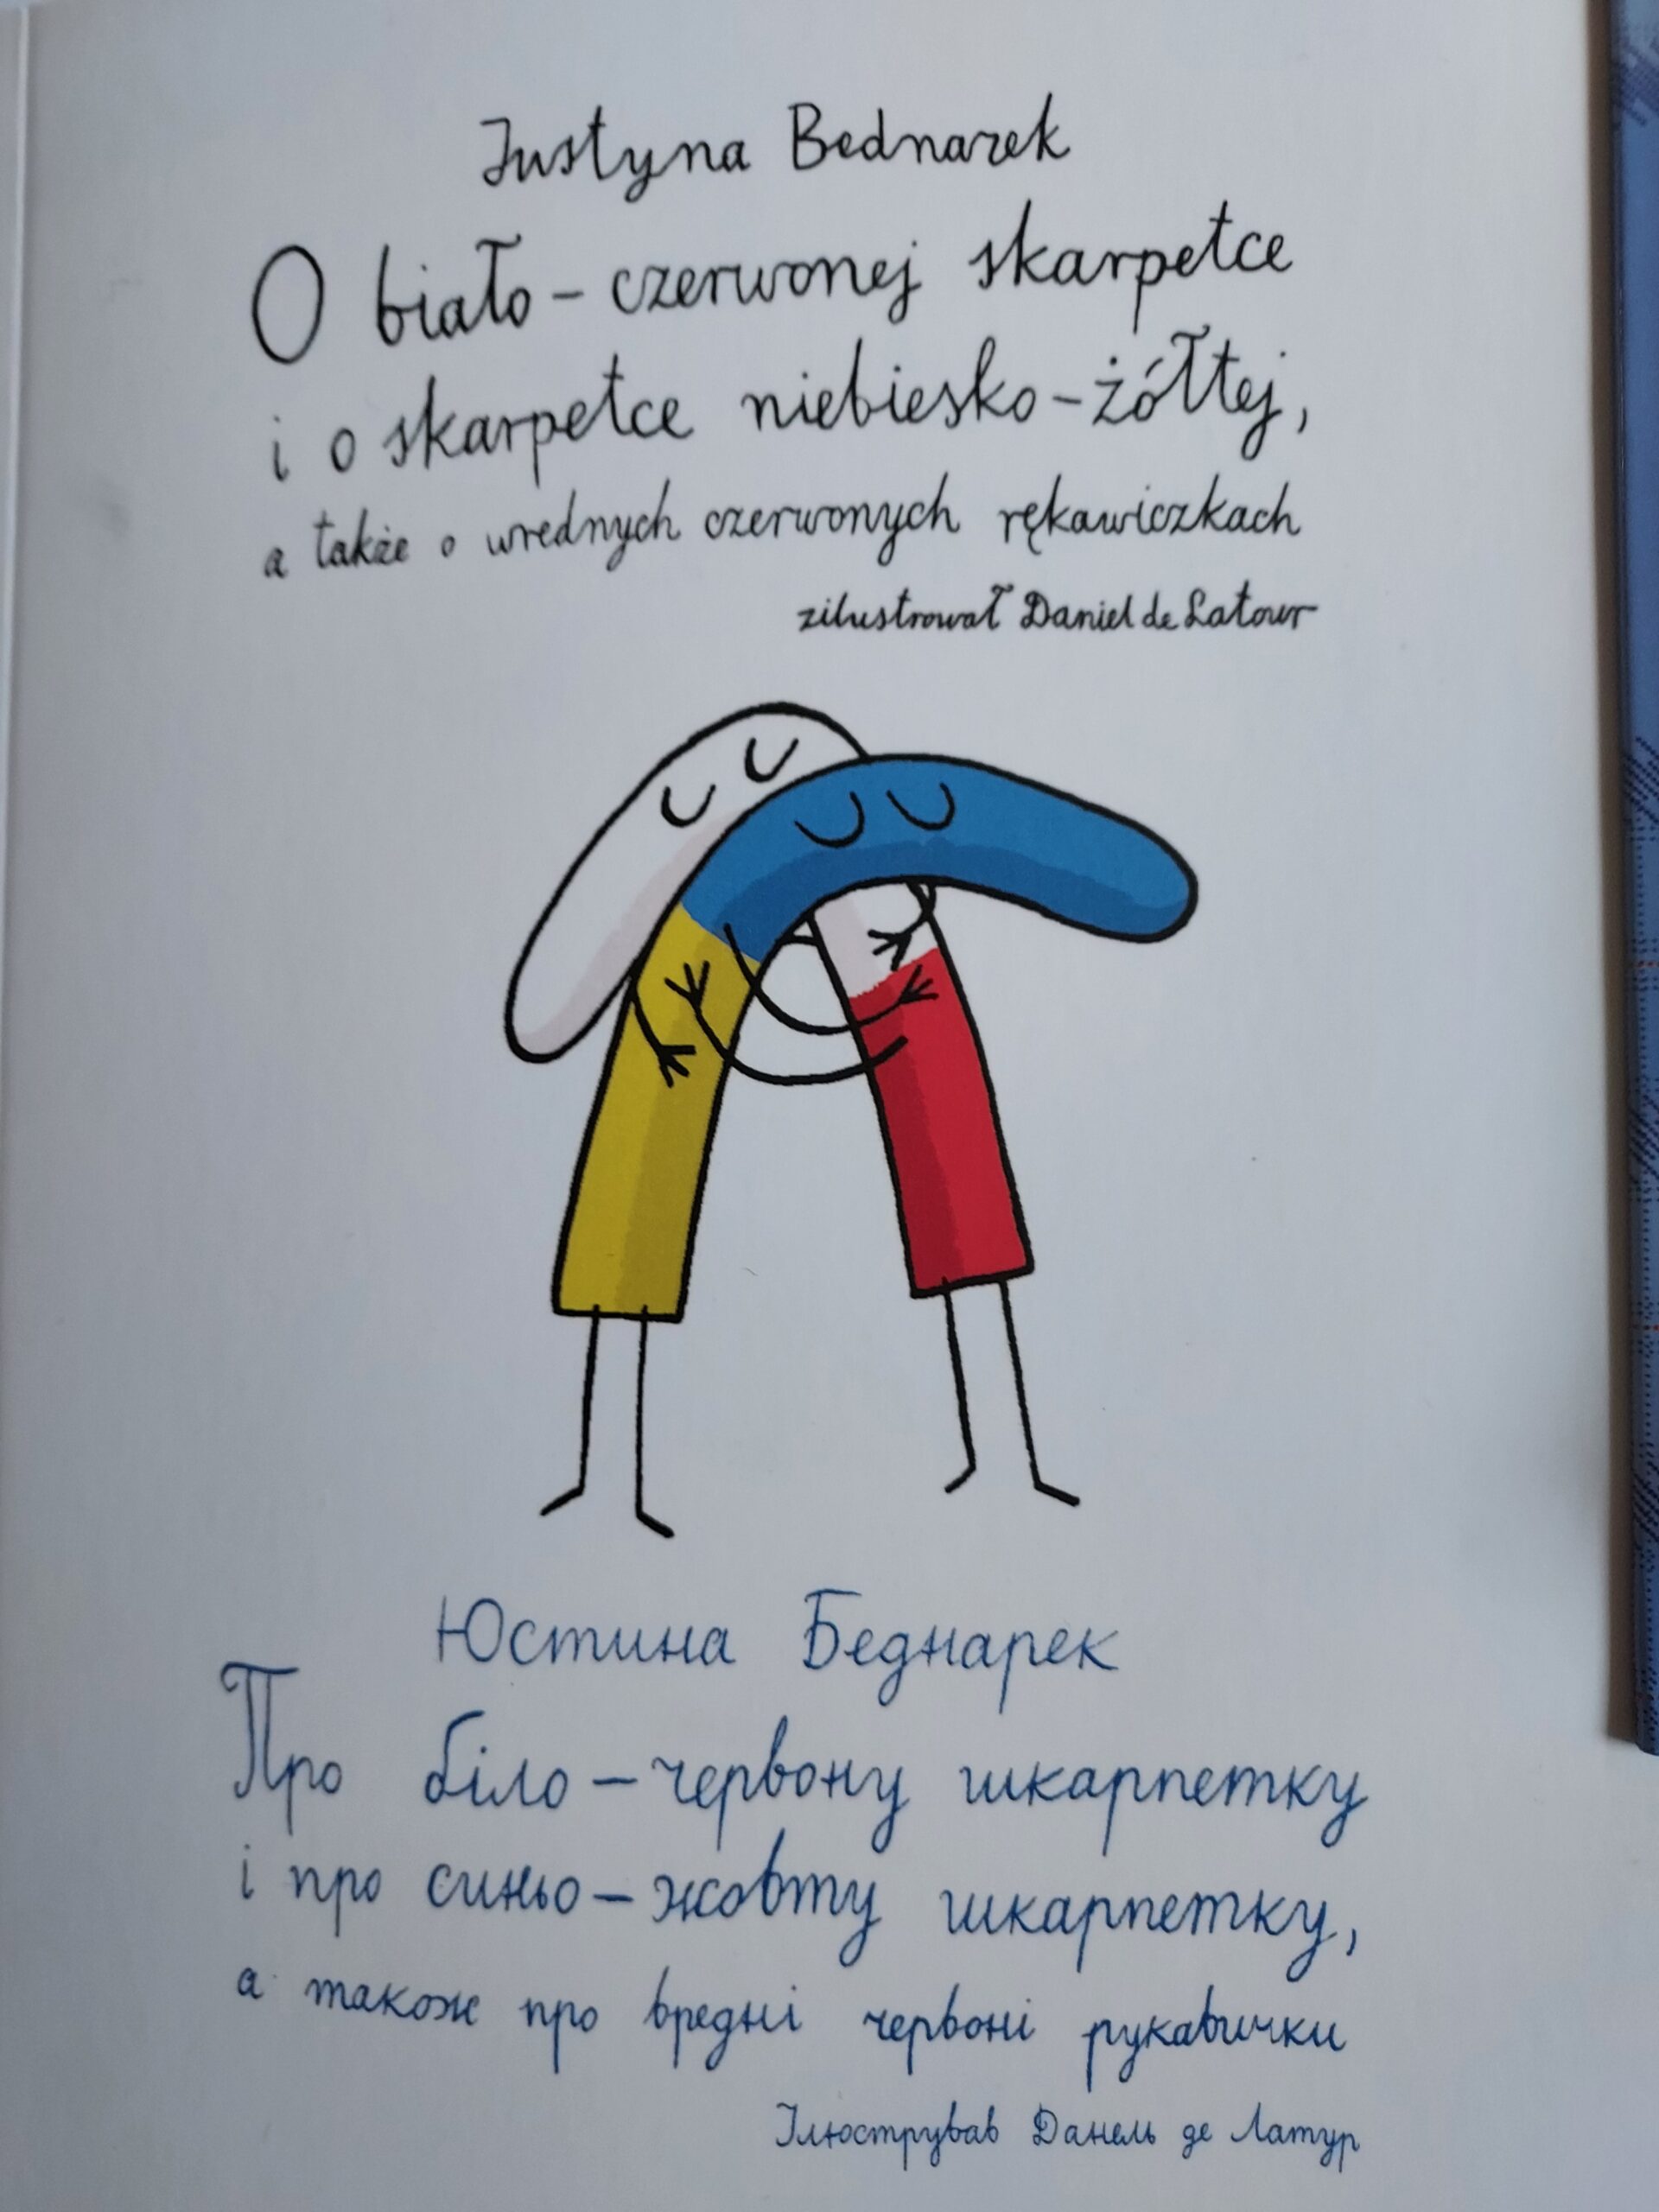 Justyna Bednarek
O biało-czerwonej skarpetce
i o skarpetce niebiesko-żółtej,
a także o wrednych czerwonych rękawiczkach
zilustrował Daniel de Latour
Юстина Беднарек
Про біло-червону шкарпетку
і про синьо-жовту шкарпетку,
а також про вредні червоні рукавички
Ілюстрував Данель де Латур